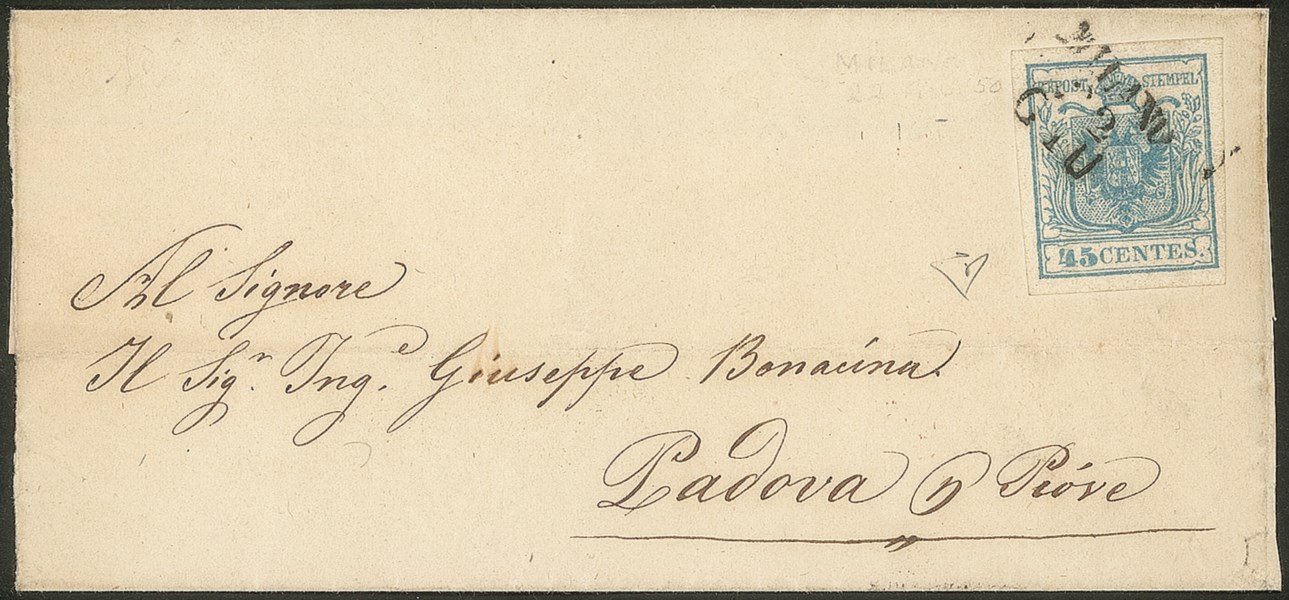 MILANO
KKPOST-STEMPEL
45 CENTES.
Al Signore
Il Sigr. Inge. Giuseppe Bonacina
Padova p Piove